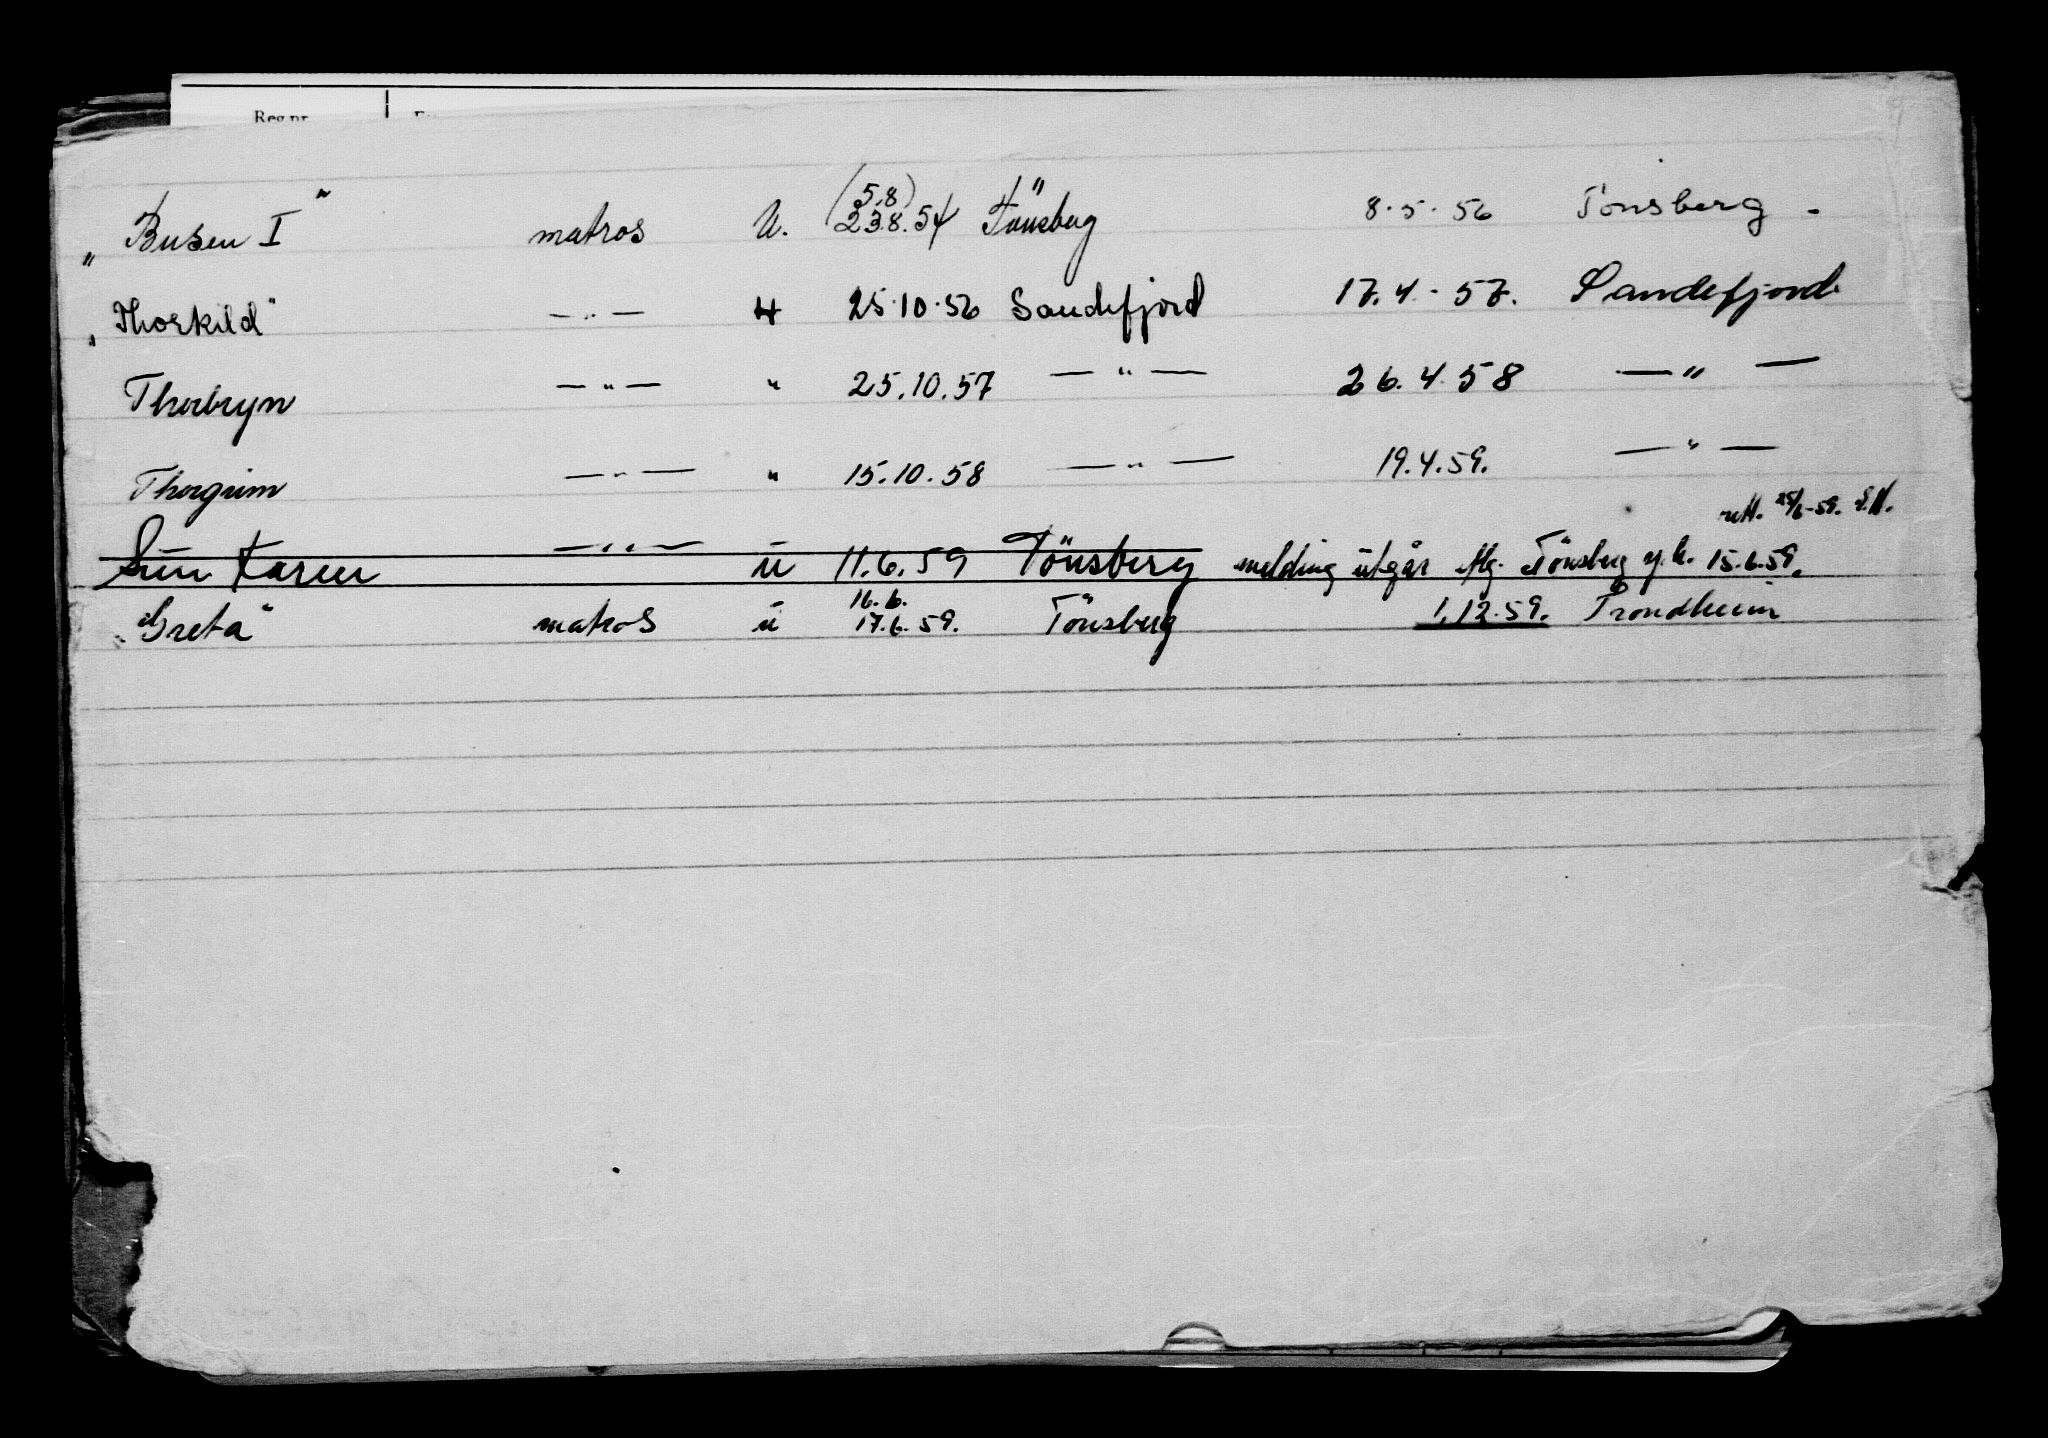 Reg.nr.
„Busen I" matros U. (5.8) 23.8.54 Tönsberg 8.5.56 Tönsberg.
„Thorkild" —"— H 25.10.56 Sandefjord 17.4.57. Sandefjord
Thorbryn —"— " 25.10.57 —"— 26.4.58 —"—
Thorgrim —"— " 15.10.58 —"— 19.4.59. —"—
rett. 25/6-59. S.N.
Sun Karen —"— u 11.6.59 Tönsberg melding utgår flg. Tönsberg m.k. 15.6.59.
16.6.
„Greta" matros u 17.6.59. Tönsberg 1.12.59. Trondheim